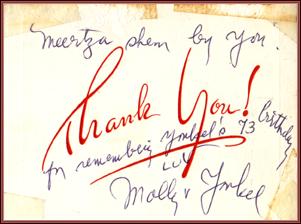 Meertza shem by you!
Thank You!
for remembering Yonkel's 73 birthday
LUV
Molly & Yonkel